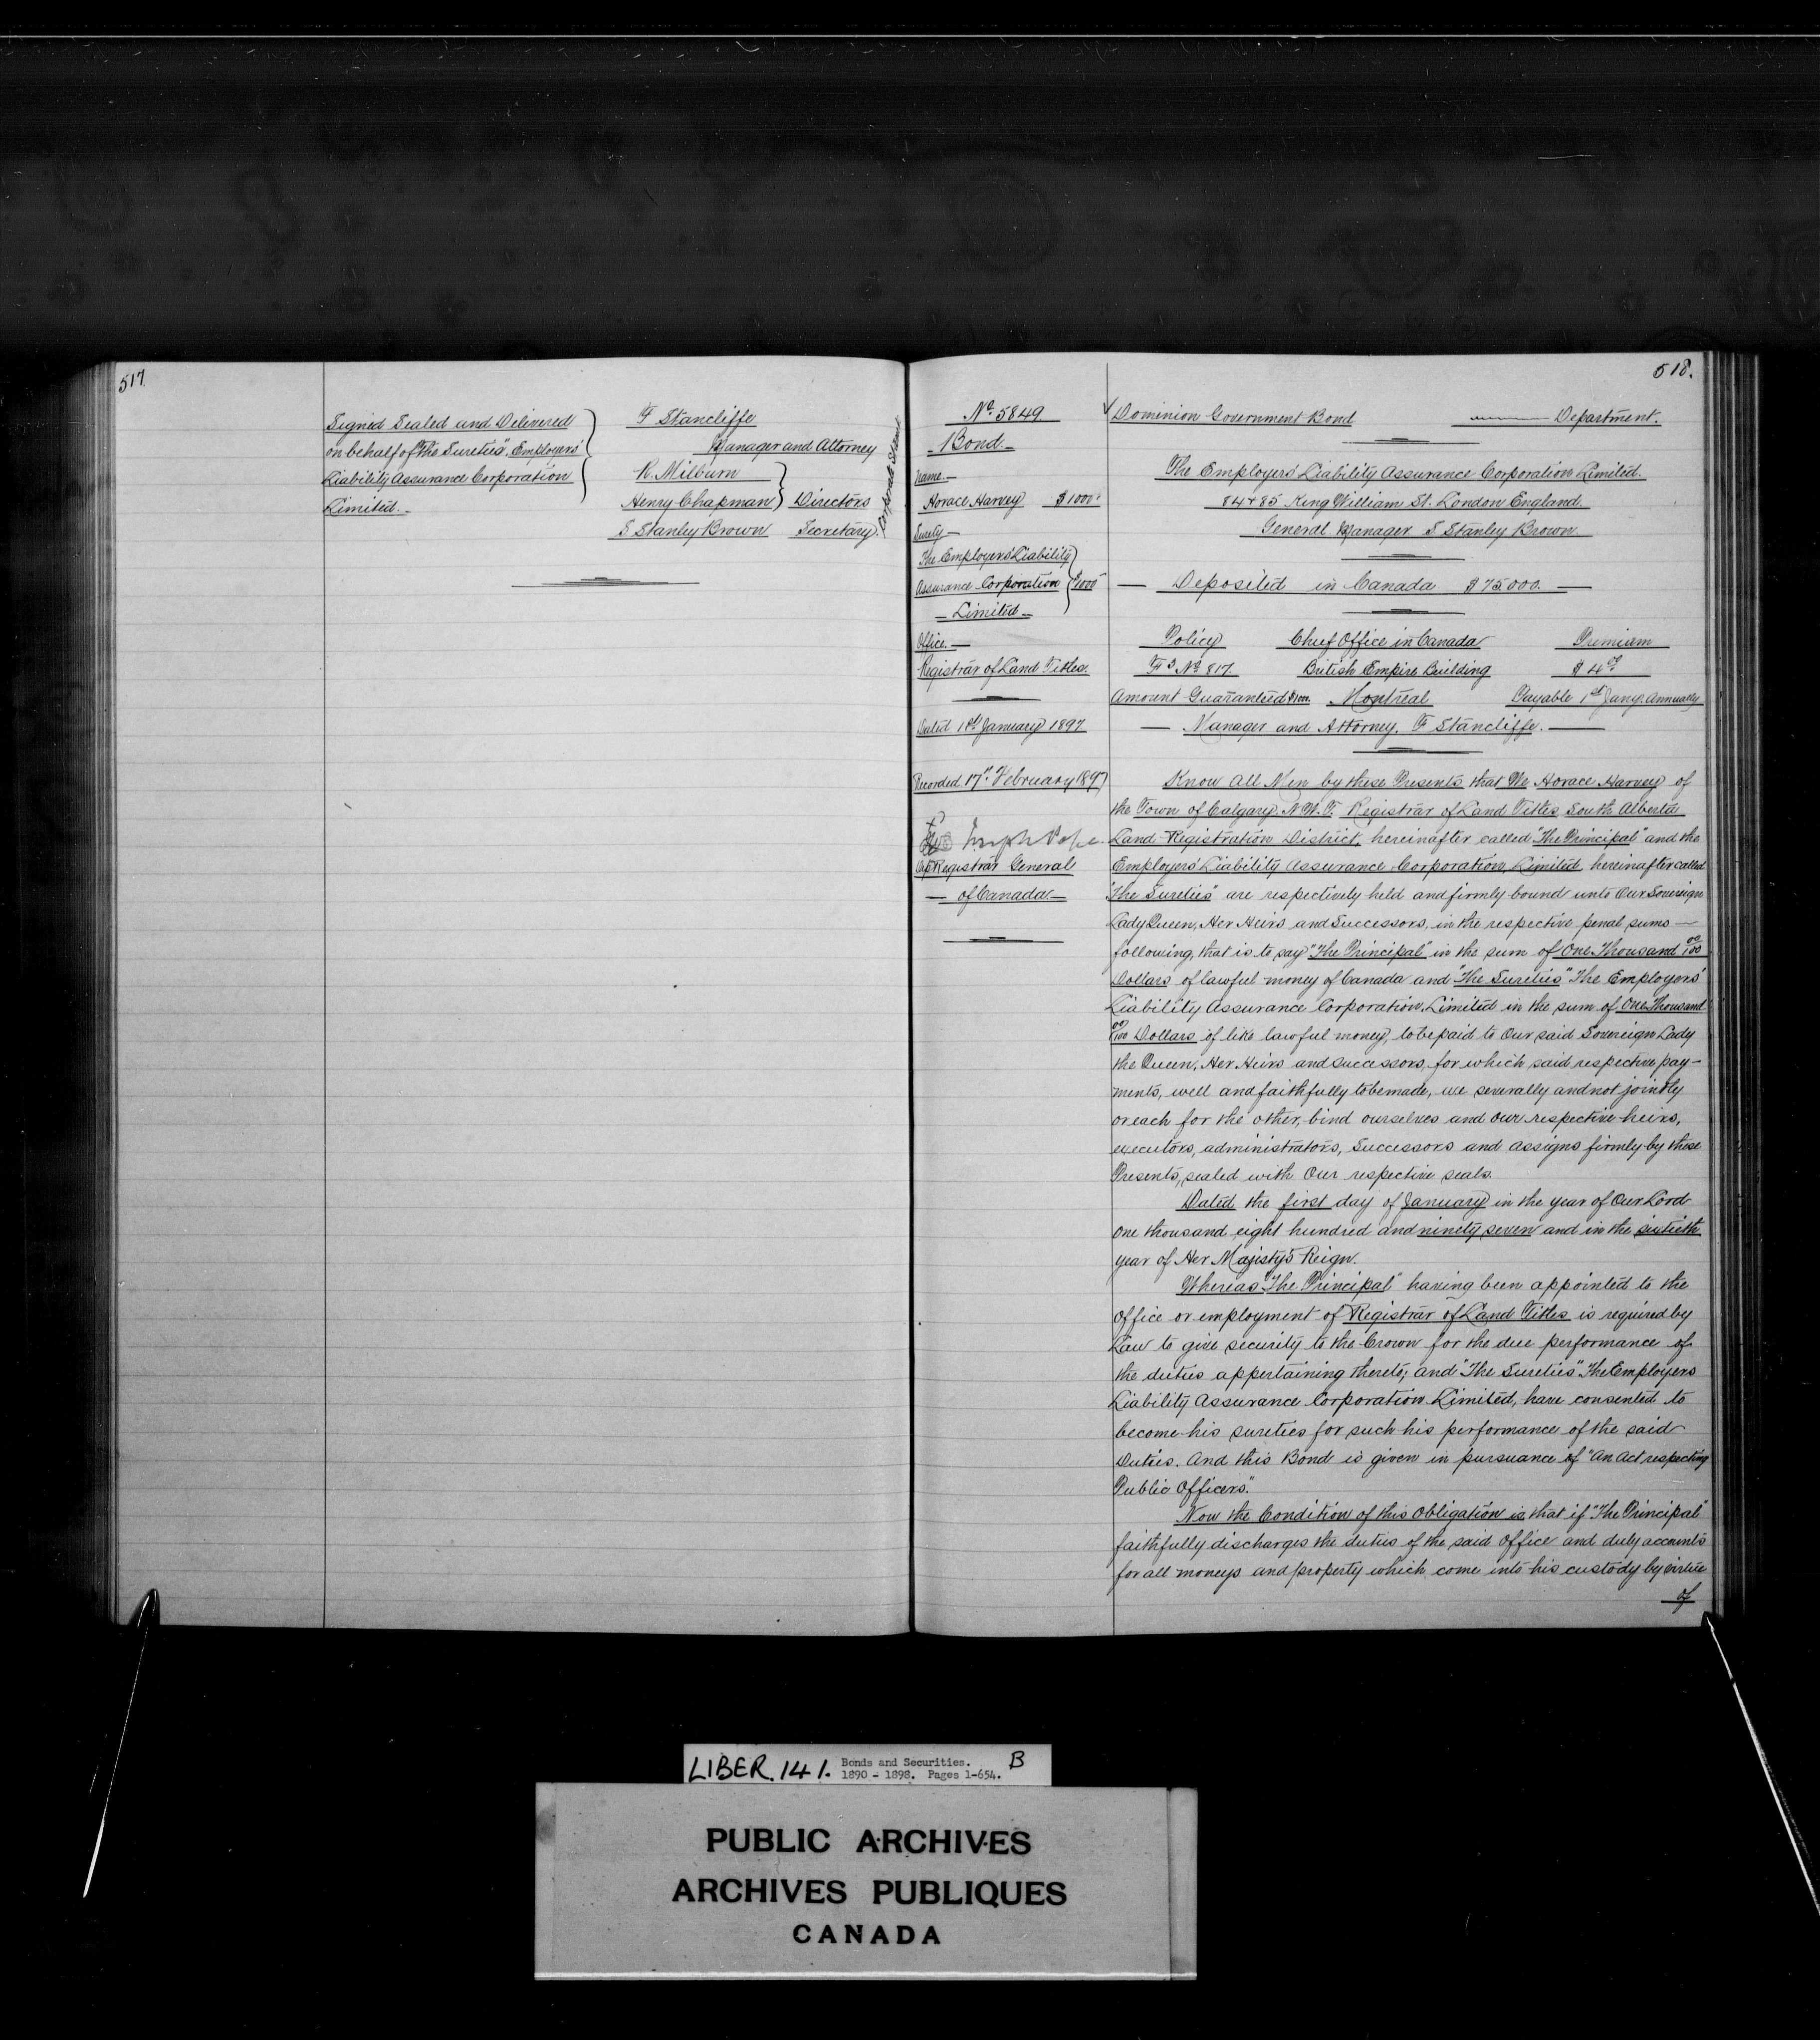 517.
Signed Sealed and Delivered
on behalf of "the Sureties", Employers'
Liability Assurance Corporation
Limited.
F Stancliffe
Manager and Attorney
R. Milburn
Henry Chapman } Directors
S Stanley Brown Secretary.
518.
No. 5849
Bond.
Name.
Horace Harvey $1000.
Surety
The Employers' Liability
Assurance Corporation $1000
Limited
Office.
Registrar of Land Titles.
Dated 1st January 1897
Recorded 17th February 1897
Joseph Pope
Dep. Registrar General
of Canada.
Dominion Government Bond Department.
The Employers' Liability Assurance Corporation Limited.
84 + 85 King William St. London England.
General Manager S Stanley Brown.
Deposited in Canada $75.000.
Policy Chief Office in Canada Premium
No 817. British Empire Building $4.00
Amount Guaranteed $1000. Montreal Payable 1st Jany. Annually
Manager and Attorney. F Stancliffe.
Know All Men by these Presents that We Horace Harvey of
the Town of Calgary. N.W.T. Registrar of Land Titles South Alberta
Land Registration District, hereinafter called "The Principal" and the
Employers' Liability Assurance Corporation, Limited, hereinafter called
"The Sureties" are respectively held and firmly bound unto Our Sovereign
Lady Queen, Her Heirs and Successors, in the respective penal sums
following, that is to say "The Principal" in the sum of One Thousand 00/100
Dollars of lawful money of Canada and "The Sureties" The Employers'
Liability Assurance Corporation, Limited in the sum of One Thousand
00/100 Dollars of like lawful money, to be paid to Our said Sovereign Lady
the Queen, Her Heirs and successors, for which said respective pay-
ments, well and faithfully to be made, we severally and not jointly
or each for the other, bind ourselves and our respective heirs,
executors, administrators, Successors and assigns firmly by these
Presents, sealed with Our respective seals.
Dated the first day of January in the year of Our Lord
one thousand eight hundred and ninety seven and in the sixtieth
year of Her Majesty's Reign.
Whereas "The Principal" having been appointed to the
office or employment of Registrar of Land Titles is required by
Law to give security to the Crown for the due performance of
the duties appertaining thereto; and "The Sureties" The Employers
Liability Assurance Corporation Limited, have consented to
become his sureties for such his performance of the said
Duties. And this Bond is given in pursuance of "An Act respecting
Public Officers."
Now the Condition of this Obligation is that if "The Principal"
faithfully discharges the duties of the said Office and duly accounts
for all moneys and property which come into his custody by virtue
of
LIBER. 141. Bonds and Securities. B
1890 - 1898. Pages 1-654.
PUBLIC ARCHIVES
ARCHIVES PUBLIQUES
CANADA